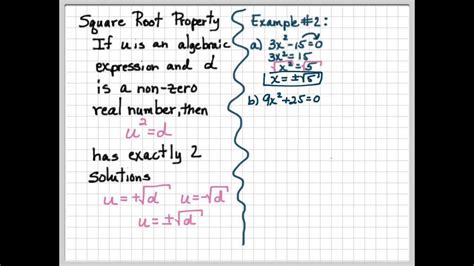 Square Root Property
If u is an algebraic
expression and d
is a non-zero
real number, then
u² = d
has exactly 2
solutions
u = +√d u = -√d
u = ±√d
Example #2:
a) 3x² - 15 = 0
3x² = 15
√x² = √5
x = ±√5
b) 9x² + 25 = 0